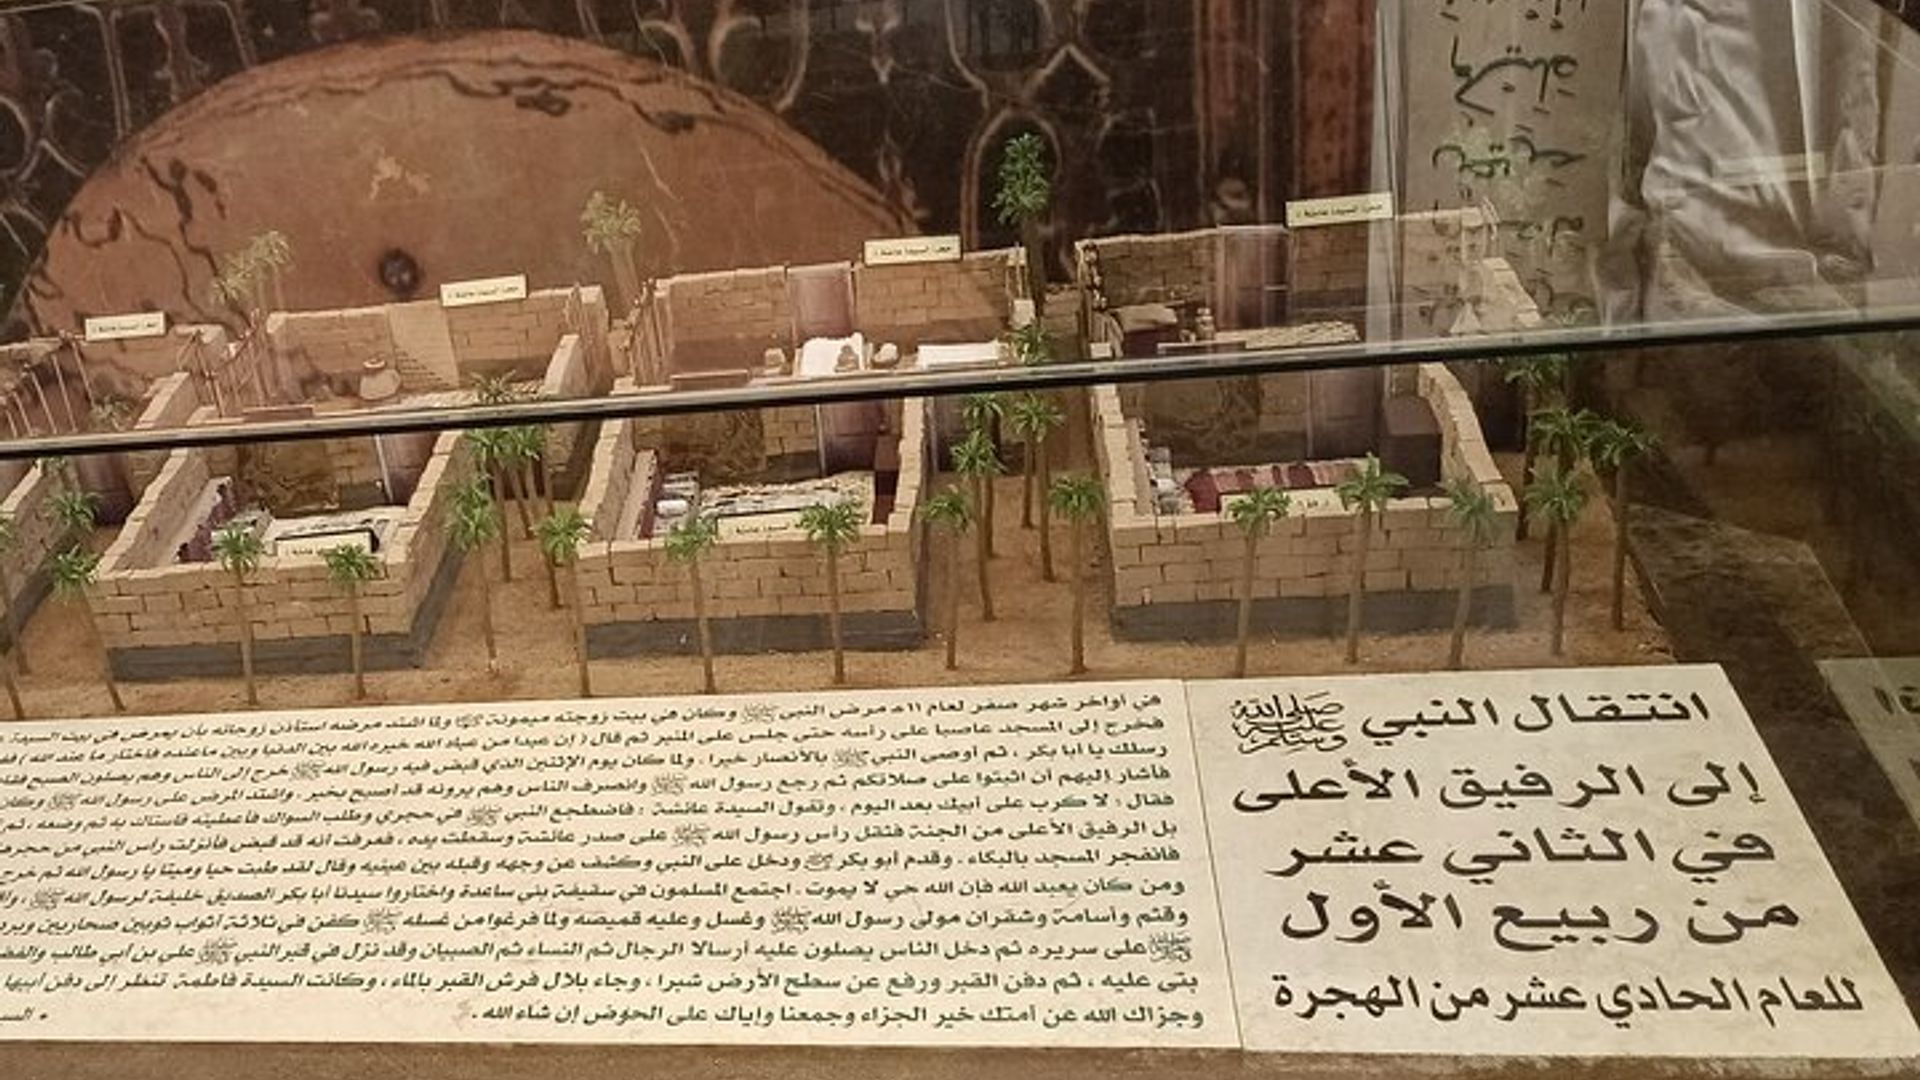 انتقال النبي ﷺ
إلى الرفيق الأعلى
في الثاني عشر
من ربيع الأول
للعام الحادي عشر من الهجرة
في أواخر شهر صفر لعام ١١هـ مرض النبي ﷺ وكان في بيت زوجته ميمونة ولما اشتد مرضه استأذن زوجاته بأن يمرض في بيت السيدة
فخرج إلى المسجد عاصبا على رأسه حتى جلس على المنبر ثم قال ( إن عبدا من عباد الله خيره الله بين الدنيا وبين ماعنده فاختار ما عند الله )
رسلك يا أبا بكر ، ثم أوصى النبي ﷺ بالأنصار خيرا . ولما كان يوم الإثنين الذي قبض فيه رسول الله ﷺ خرج إلى الناس وهم يصلون الصبح
فأشار إليهم أن اثبتوا على صلاتكم ثم رجع رسول الله ﷺ وانصرف الناس وهم يرونه قد أصبح بخير . واشتد المرض على رسول الله ﷺ وكان
فقال : لا كرب على أبيك بعد اليوم ، وتقول السيدة عائشة : فاضطجع النبي ﷺ في حجري وطلب السواك فأعطيته فاستاك به ثم وضعه ،
بل الرفيق الأعلى من الجنة فثقل رأس رسول الله ﷺ على صدر عائشة وسقطت يده ، فعرفت أنه قد قبض فأنزلت رأس النبي من حجرها
فانفجر المسجد بالبكاء . وقدم أبو بكر ودخل على النبي وكشف عن وجهه وقبله بين عينيه وقال لقد طبت حيا وميتا يا رسول الله ثم خرج
ومن كان يعبد الله فإن الله حي لا يموت . اجتمع المسلمون في سقيفة بني ساعدة واختاروا سيدنا أبا بكر الصديق خليفة لرسول الله ﷺ ،
وقثم وأسامة وشقران مولى رسول الله ﷺ وغسل وعليه قميصه ولما فرغوا من غسله ﷺ كفن في ثلاثة أثواب ثوبين صحاريين
ﷺ على سريره ثم دخل الناس يصلون عليه أرسالا الرجال ثم النساء ثم الصبيان وقد نزل في قبر النبي ﷺ علي بن أبي طالب
بتى عليه ، ثم دفن القبر ورفع عن سطح الأرض شبرا ، وجاء بلال فرش القبر بالماء ، وكانت السيدة فاطمة تنظر إلى دفن أبيها
وجزاك الله عن أمتك خير الجزاء وجمعنا وإياك على الحوض إن شاء الله .